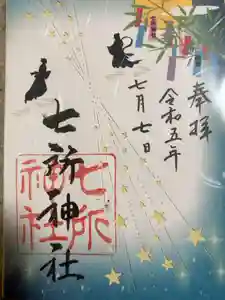 奉拝
令和五年
七月七日
七所神社
七所
神社